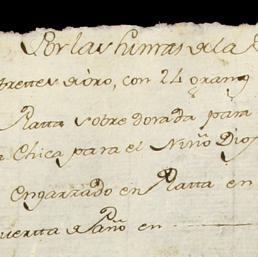 Por las humas de la
fretes d oro, con 24 gram
Platta sobre dorada para
Chica para el Niño Dios
Engarzado en Platta en
en